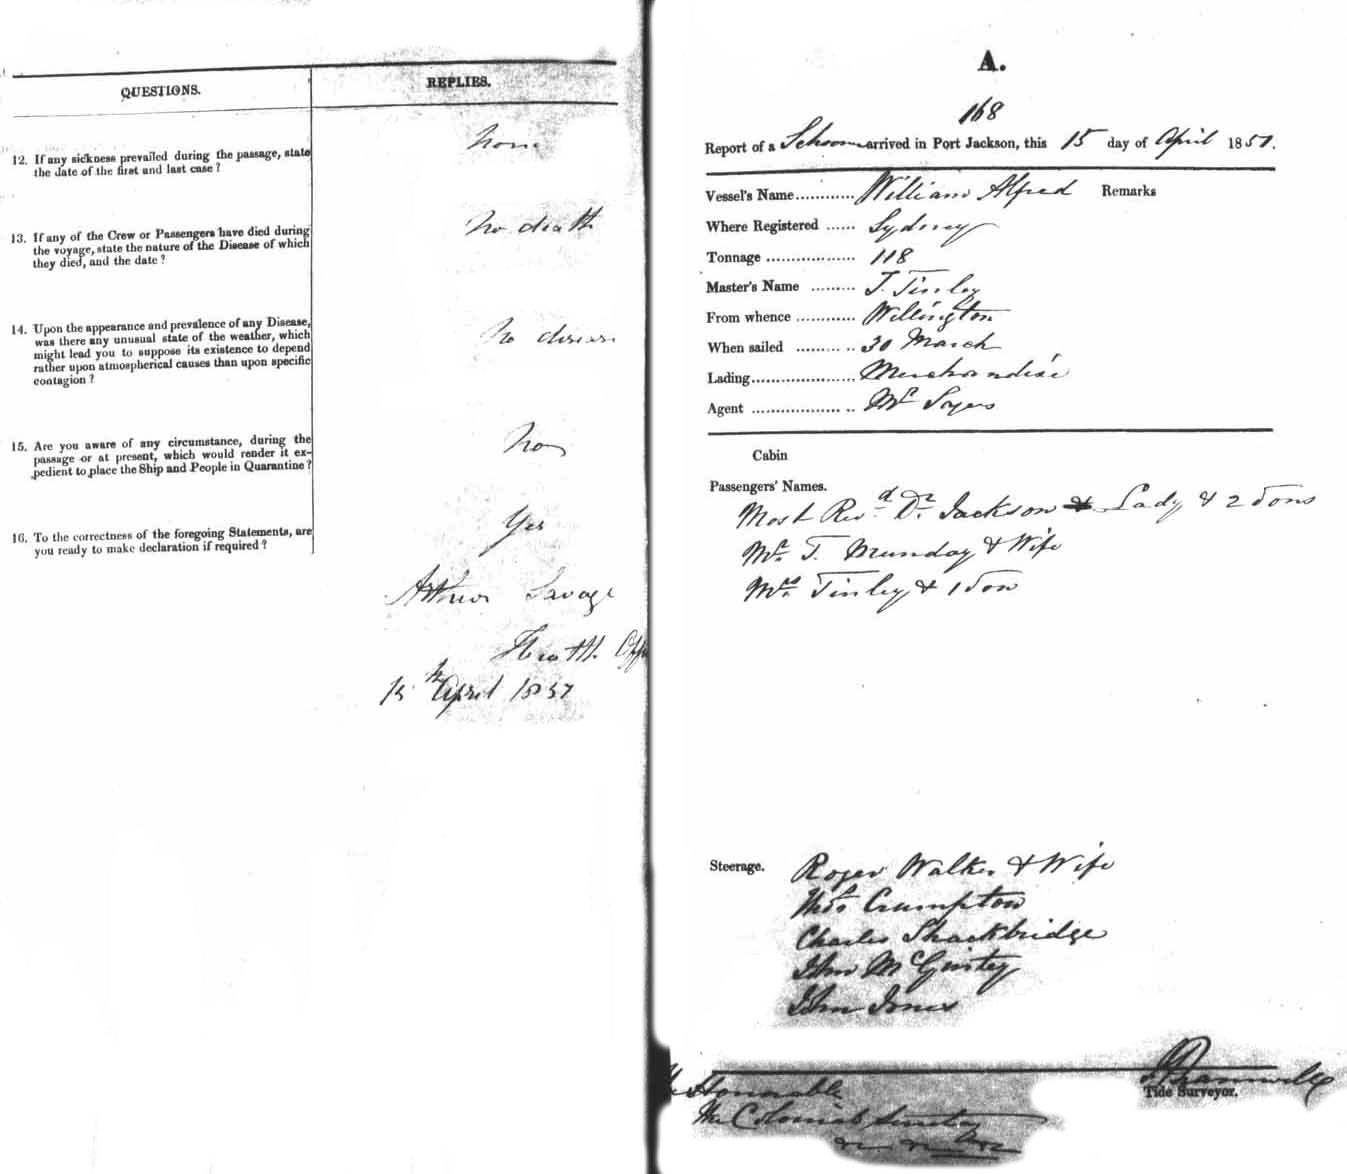 QUESTIONS.
REPLIES.
12. If any sickness prevailed during the passage, state
the date of the first and last case?
None
13. If any of the Crew or Passengers have died during
the voyage, state the nature of the Disease of which
they died, and the date?
No death
14. Upon the appearance and prevalence of any Disease,
was there any unusual state of the weather, which
might lead you to suppose its existence to depend
rather upon atmospherical causes than upon specific
contagion?
No disease
15. Are you aware of any circumstance, during the
passage or at present, which would render it ex-
pedient to place the Ship and People in Quarantine?
No
16. To the correctness of the foregoing Statements, are
you ready to make declaration if required?
Yes
Arthur Savage
Health Off
15th April 1857
A.
168
Report of a Schooner arrived in Port Jackson, this 15 day of April 1857.
Vessel's Name............ William Alfred Remarks
Where Registered ...... Sydney
Tonnage .................. 118
Master's Name ......... J. Tinley
From whence ............ Wellington
When sailed ......... .. 30 March
Lading..................... Merchandise
Agent .................. .. Mr Sayers
Cabin
Passengers' Names.
Most Revd Dr Jackson & Lady & 2 Sons
Mr T. Munday & Wife
Mrs Tinley & 1 Son
Steerage. Roger Walker & Wife
Thos Crumpton
Charles Shackbridge
John McGinty
John Jones
Tide Surveyor.
The Honorable
The Colonial Secretary
&c &c &c